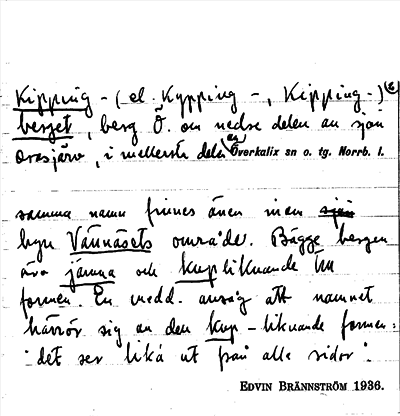 Kipping - (el. Kypping -, Kipping -)
berget, berg Ö. om nedre delen av sjön
Orasjärv, i mellersta delen av Överkalix sn o. tg. Norrb. l.
samma namn finnes även inom
byn Vännäsets område. Bägge bergen
äro jämna och kupliknande till
formen. En medd. ansåg att namnet
härrör sig av den kup-liknande formen:
"det ser lika ut från alla sidor".
EDVIN BRÄNNSTRÖM 1936.